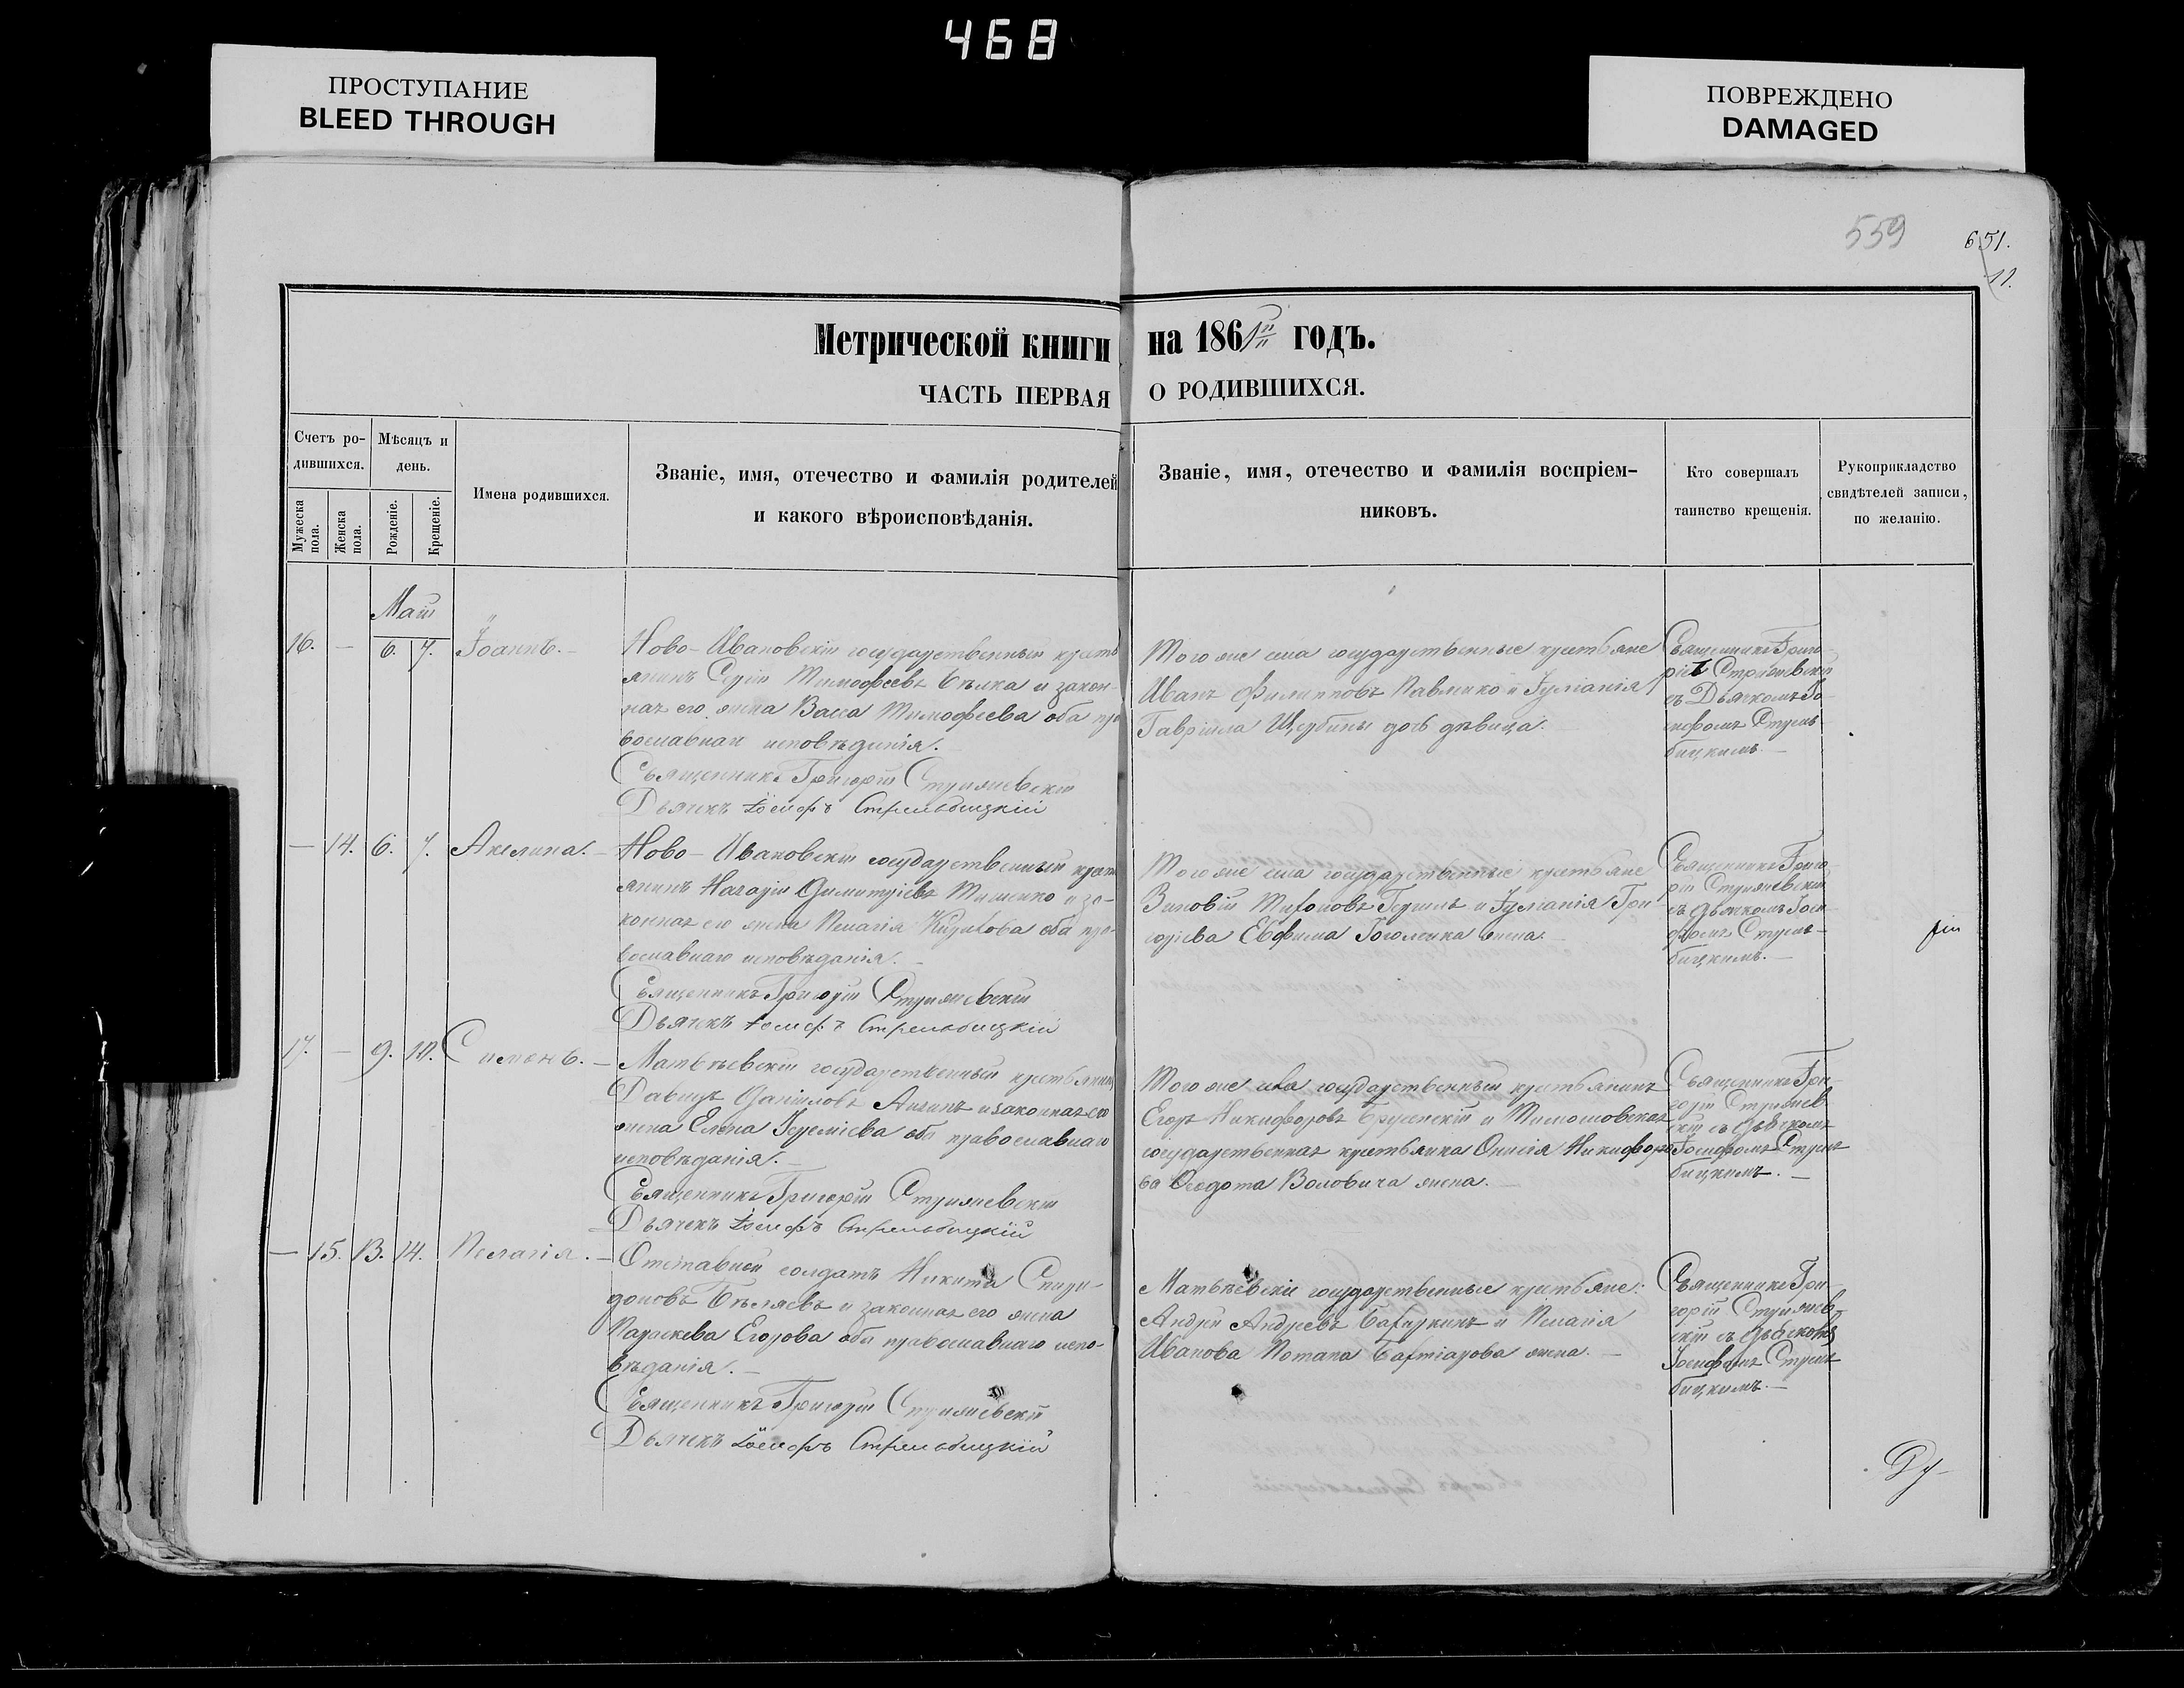 468
ПРОСТУПАНИЕ
BLEED THROUGH
ПОВРЕЖДЕНО
DAMAGED
559
651.
11.
Метрической книги на 1861 годъ.
ЧАСТЬ ПЕРВАЯ О РОДИВШИХСЯ.
Счетъ ро-
дившихся.
Мужеска
пола.
Женска
пола.
Мѣсяцъ и
день.
Рожденіе.
Крещеніе.
Имена родившихся.
Званіе, имя, отечество и фамилія родителей
и какого вѣроисповѣданія.
Званіе, имя, отечество и фамилія воспріем-
никовъ.
Кто совершалъ
таинство крещенія.
Рукоприкладство
свидѣтелей записи,
по желанію.
Маій
16. — 6. 7. Іоаннъ. —
Ново-Ивановскій государственный кресть
янинъ Сергій Тимофеевъ Бѣлка и закон-
ная его жена Васса Тимофеева оба пра
вославнаго исповѣданія. —
Священникъ Григорій Стрижевскій
Дьячекъ Іосифъ Стрельбицкій
Того же села государственные крестьяне
Иванъ Филипповъ Павленко и Іуліанія
Гавріила Щербины дочь дѣвица. —
Священникъ Григо
рій Стрижевскій
съ Дьячкомъ Іо
сифомъ Стрель
бицкимъ. —
— 14. 6. 7. Акелина. —
Ново-Ивановскій государственный кресть
янинъ Назарій Димитріевъ Тищенко и за-
конная его жена Пелагія Кирилова оба пра-
вославнаго исповѣданія. —
Священникъ Григорій Стрижевскій
Дьячекъ Іосифъ Стрельбицкій
Того же села государственные крестьяне
Зиновій Тихоновъ и Іуліанія Гри
горіева Евфима Гоголенка жена.
Священникъ Григо
рій Стрижевскій
съ дьячкомъ Іоси
фомъ Стрель-
бицкимъ. —
17. — 9. 10. Симонъ. —
Матвѣевскій государственный крестьянинъ
Давидъ Даніиловъ и законная его
жена Елена Іереміева оба православнаго
исповѣданія. —
Священникъ Григорій Стрижевскій
Дьячекъ Іосифъ Стрельбицкій
Того же села государственный крестьянинъ
Егоръ Никифоровъ и Тимошовская
государственная крестьянка Онисія Никифоро
ва Ѳеодота Воловича жена. —
Священникъ Гри-
горій Стрижев
скій съ дьячкомъ
Іосифомъ Стрель
бицкимъ. —
— 15. 13. 14. Пелагія. —
Отставной солдатъ Никита Спири-
доновъ Бѣляевъ и законная его жена
Параскева Егорова оба православнаго испо-
вѣданія. —
Священникъ Григорій Стрижевскій
Дьячекъ Іосифъ Стрельбицкій
Матвѣевскіе государственные крестьяне:
Андрей Андреевъ и Пелагія
Иванова Потапа Бахтіарова жена. —
Священникъ Гри-
горій Стрижев-
скій съ дьячкомъ
Іосифомъ Стрель
бицкимъ. —
рій